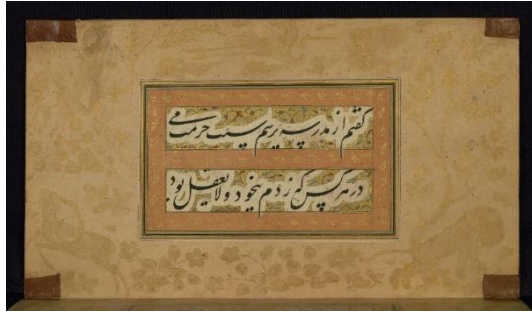 گفتم از مدرسه پرسم سبب حرمت می
در هر کس که زدم بیخود و لایعقل بود